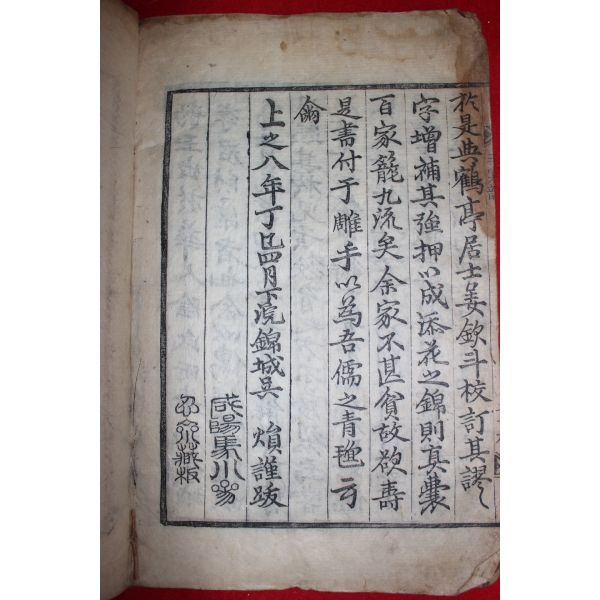 於是與鶴亭居士姜欽斗校訂其謬
字增補其強押以成添花之錦則真囊
百家籠九流矣余家不甚貧故欲壽
是書付于雕手以為吾儒之青氊云
爾
上之八年丁巳四月下浣錦城吳 熕謹跋
咸陽
藏板